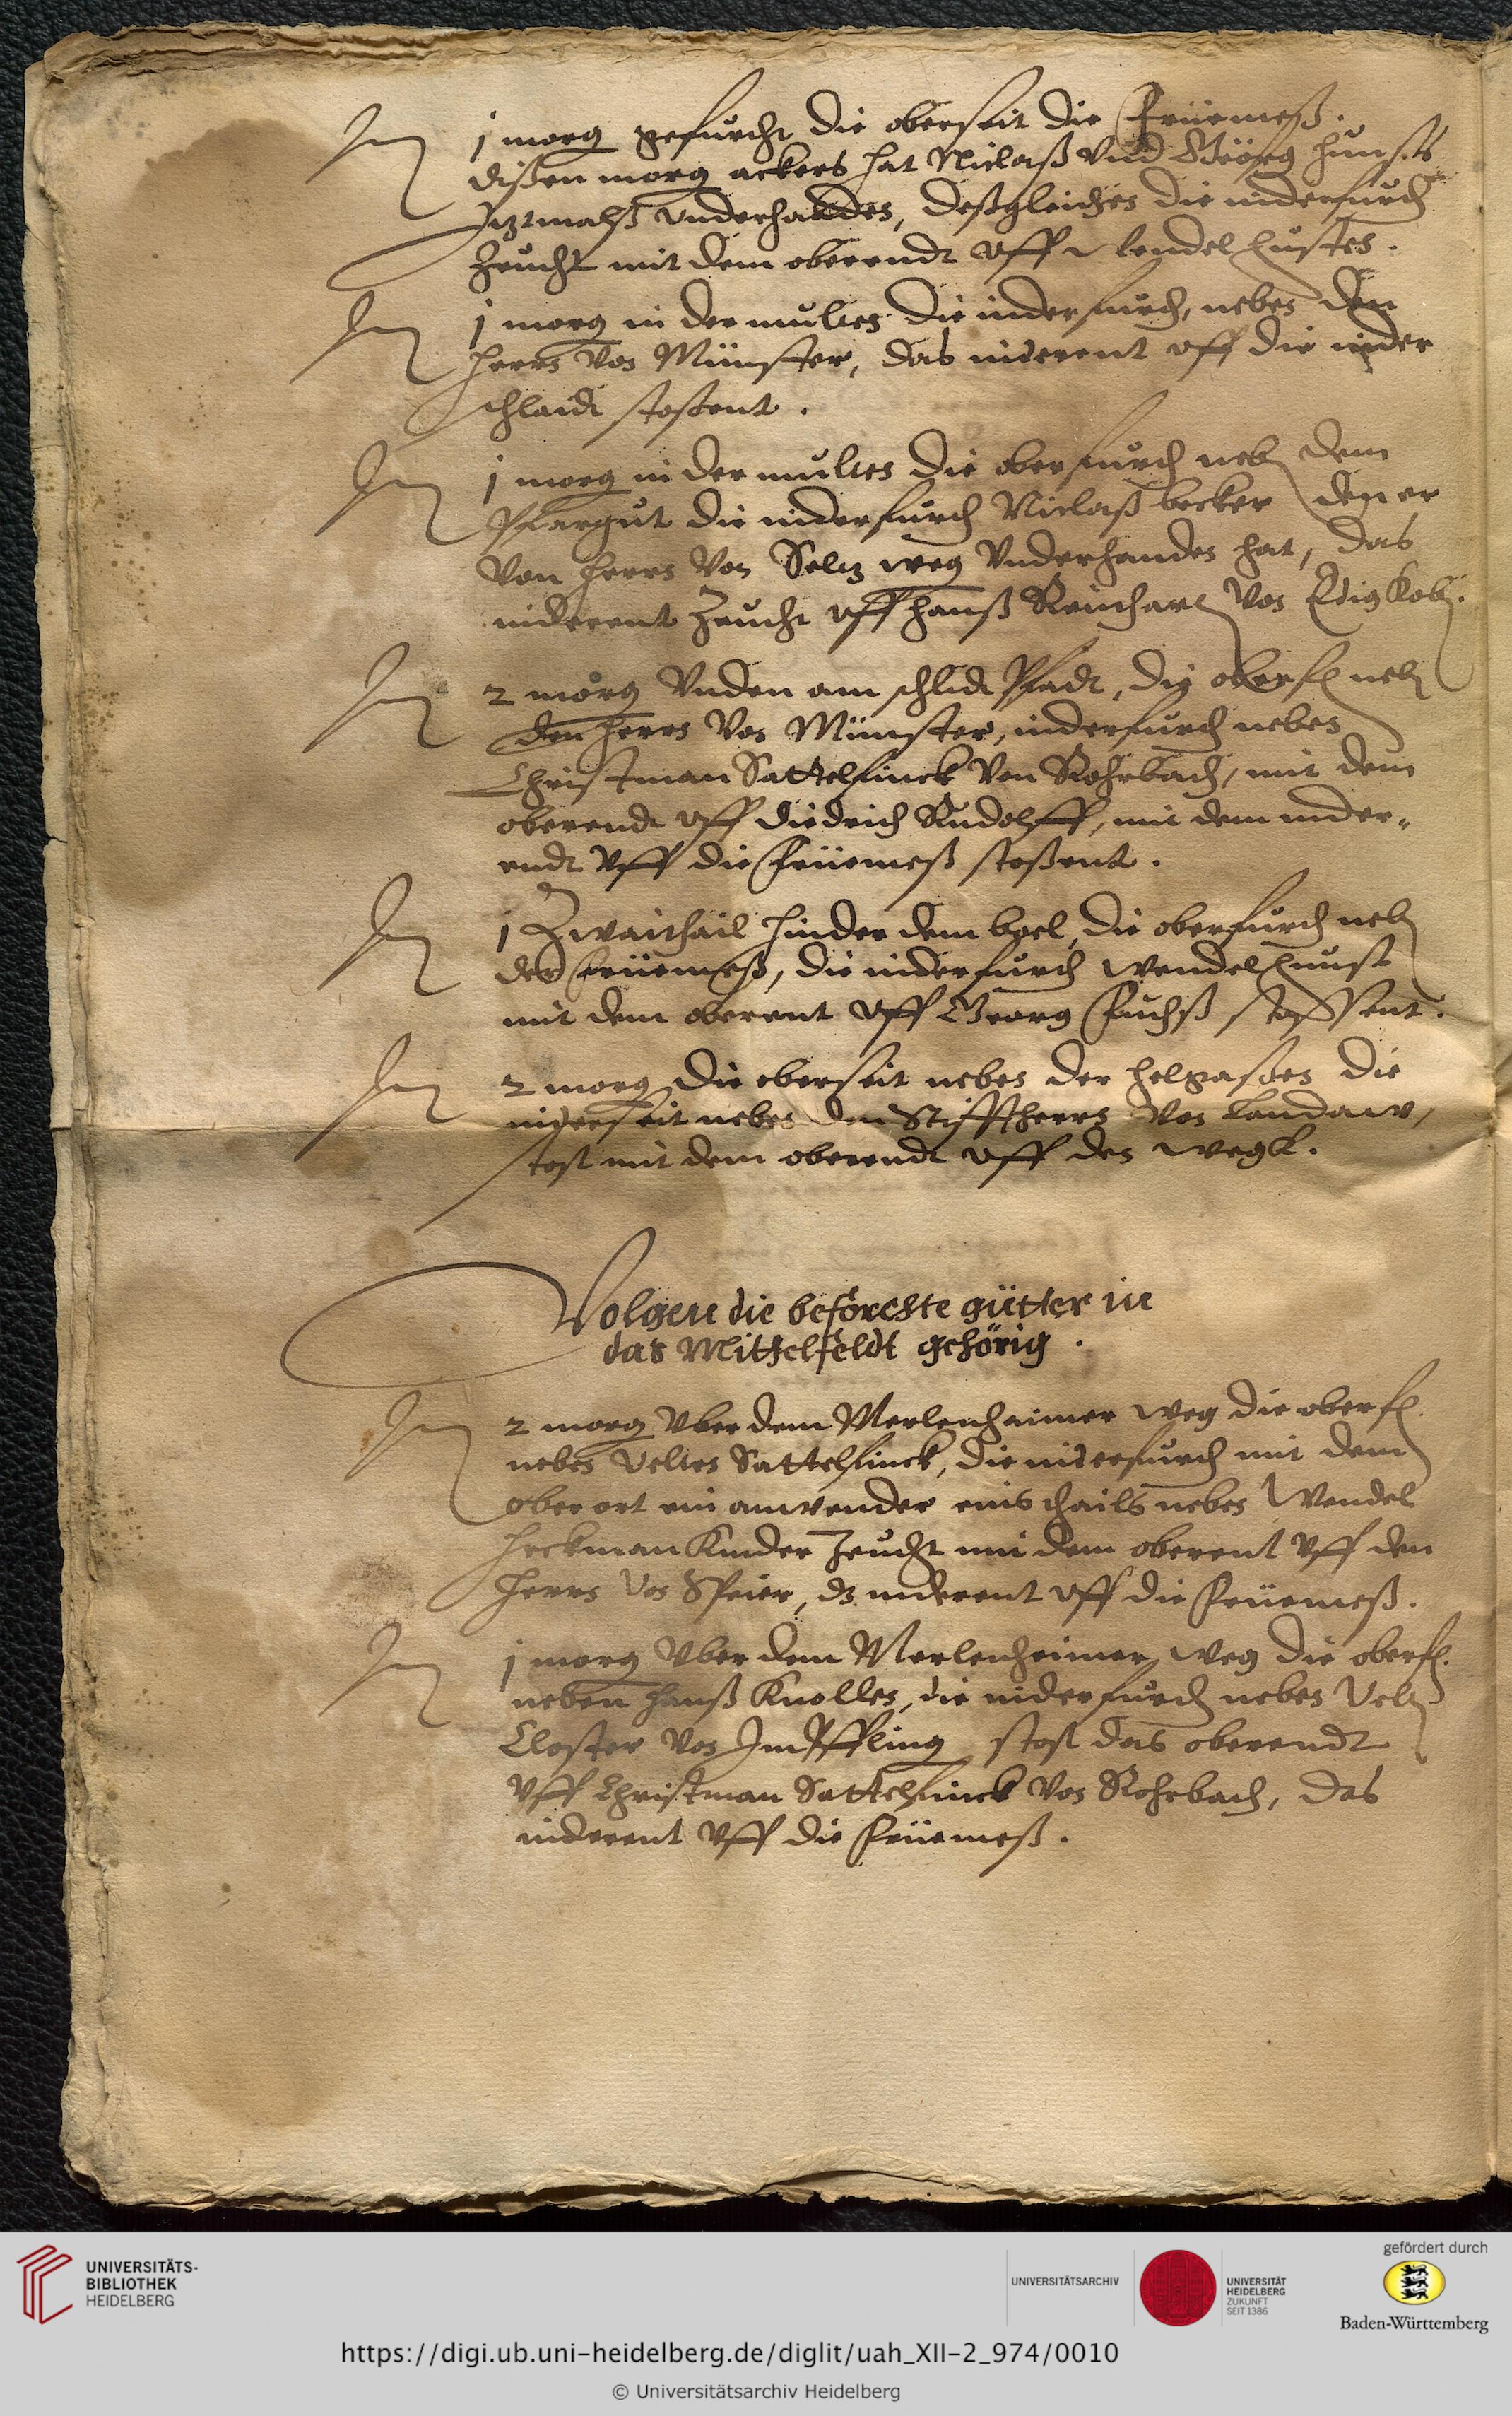 Jtem 1 morg gefurcht die oberseit die Früemeß.
dißen morg ackers hat Niclaß vnd Geörg hunsts
Jtztmalß vnderhanden, deßgleichen die niderfurch
Zeucht mit dem oberendt vff wendel
Jtem 1 morg in der multen die niderfurch, neben den
herrn von Münster, das niderent vff die nider
schlaidt stoßent.
Jtem 1 morg in der multen die oberfurch neben dem
Pfargut die niderfurch Niclaß becker den er
von herrn von Seltz weg vnderhanden hat, das
niderent Zeucht vff hanß Reinhart von
Jtem 2 morg vnden am schlidt Pfadt, die oberf. neben
den herrn von Münster, niderfurch neben
Christman Sattelfinck von Rohrbach, mit dem
oberendt vff Diedrich Rudolff, mit dem nider-
endt vff die Früemeß stoßent.
Jtem 1 Zwaitheil hinder dem boel, die oberfurch neben
der Früemeß, die niderfurch wendel
mit dem oberent vff Georg Fuchß stoßent.
Jtem 2 morg die oberseit neben der helgaßen die
niderseit neben den Stifftherrn von Landaw,
stost mit dem oberendt vff den wegk.
Volgen die beförchte gütter in
das Mittelfeldt gehörig.
Jtem 2 morg vber dem Merlenheimer weg die oberf.
neben velten Sattelfinck, die niderfurch mit dem
ober ort ein anwender eins theils neben Wendel
heckman Kinder Zeucht mit dem oberent vff den
herrn von Speier, dz niderent vff die Früemeß.
Jtem 1 morg vber dem Merlenheimer weg die oberf.
neben hanß Knollen, die niderfurch neben
Closter von Jmpffling stost das oberendt
vff Christman Sattelfinck von Rohrbach, das
niderent vff die Früemeß.
UNIVERSITÄTS-
BIBLIOTHEK
HEIDELBERG
UNIVERSITÄTSARCHIV
UNIVERSITÄT
HEIDELBERG
ZUKUNFT
SEIT 1386
gefördert durch
Baden-Württemberg
https://digi.ub.uni-heidelberg.de/diglit/uah_XII-2_974/0010
© Universitätsarchiv Heidelberg